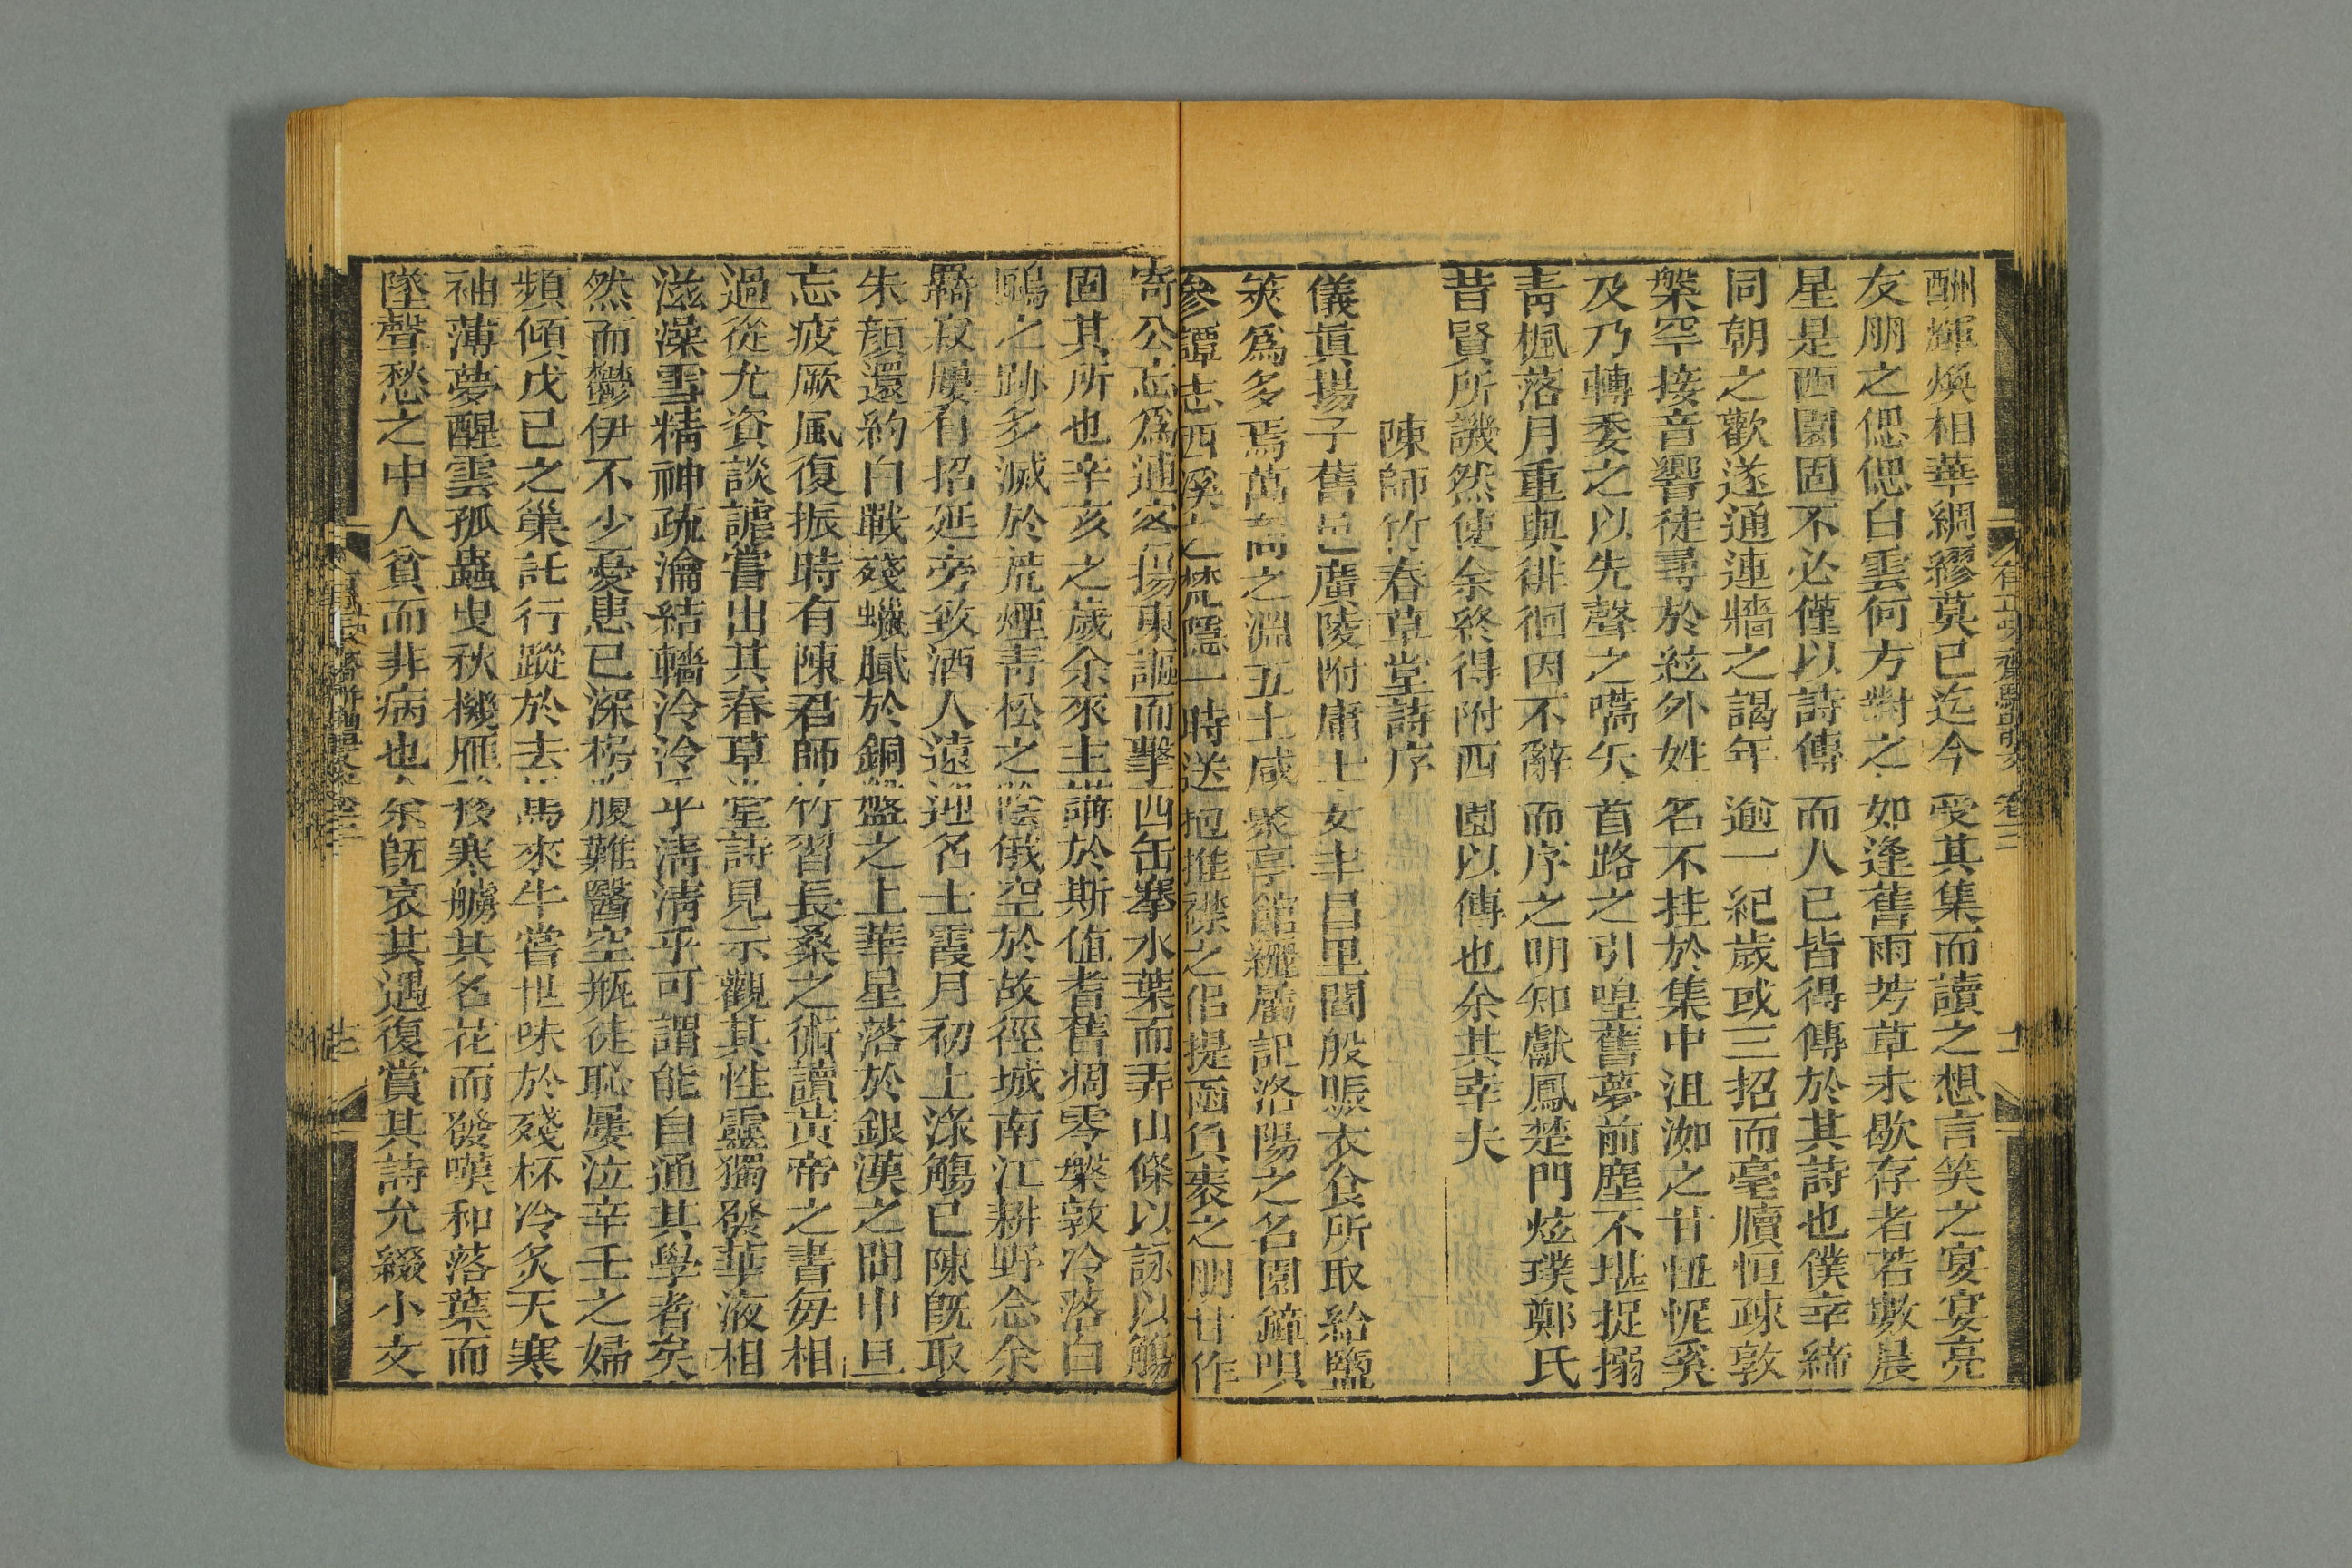 酬輝煥相華綢繆莫已迄今受其集而讀之想言笑之宴宴亮
友朋之偲偲白雲何方對之如逢舊雨芳草未歇存者若數晨
星是西園固不必僅以詩傳而人已皆得傳於其詩也僕幸締
同朝之歡遂通連牆之謁年逾一紀歲或三招而毫牘恒疎敦
槃罕接音響徒尋於絃外姓名不挂於集中沮洳之甘忸怩奚
及乃轉委之以先聲之嚆矢首路之引喤舊夢前塵不堪捉搦
青楓落月重與徘徊因不辭而序之明知獻鳳楚門炫璞鄭氏
昔賢所譏然使余終得附西園以傳也余其幸夫
陳師竹春草堂詩序
儀眞揚子舊邑廣陵附庸士女丰昌里閭殷賑衣食所取給鹽
筴爲多焉萬商之淵五土咸聚亭館纚屬記洛陽之名園鐘唄
參譚志西溪之梵隱一時送抱推襟之侶提函負袠之朋甘作
寄公忘爲逋客揚東謳而擊西缶搴水葉而弄山條以詠以觴
固其所也辛亥之歲余來主講於斯値耆舊凋零槃敦冷落白
鷗之跡多滅於荒煙靑松之陰俄空於故徑城南江耕野念余
羇寂屢有招延旁致酒人遠迎名士霞月初上淥觴已陳旣取
朱顏還約白戰殘蠟膩於銅盤之上華星落於銀漢之間申旦
忘疲厥風復振時有陳君師竹習長桑之術讀黄帝之書每相
過從尤資談謔嘗出其春草堂詩見示觀其性靈獨發華液相
滋澡雪精神疏瀹結轖泠泠乎淸淸乎可謂能自通其學者矣
然而鬱伊不少憂患已深楞腹難醫空瓶徒恥屢泣辛壬之婦
頻傾戊已之巢託行蹤於去馬來牛嘗世味於殘杯冷炙天寒
袖薄夢醒雲孤蟲曳秋機雁後寒艣其名花而發嘆和落葉而
墜聲愁之中人貧而非病也余旣哀其遇復賞其詩允綴小文